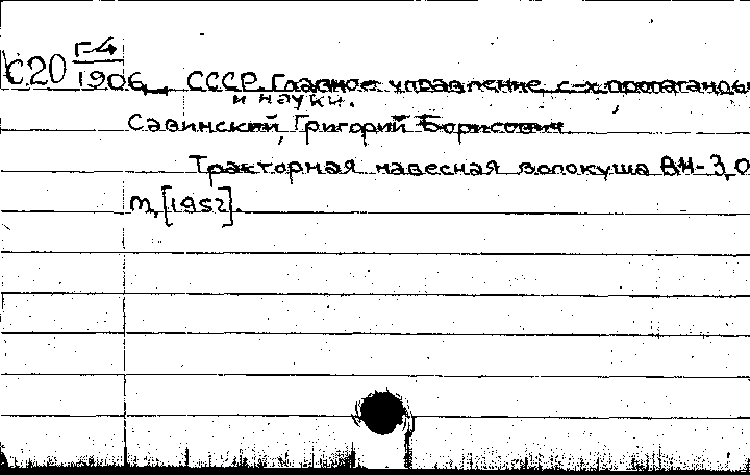 С20 Г-4
1906 СССР. Главное управление с-х.пропаганды
и науки.
Савинский, Григорий Борисович
Тракторная навесная волокуша ВН-3,0
М, [1952].